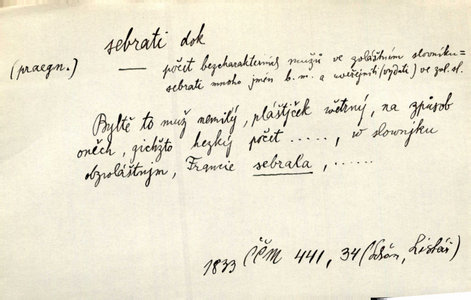 sebrati dok
(praegn.) — počet bezcharakterních mužů ve zvláštním slovníku =
sebrati mnoho jmén b. m. a uveřejniti (vydati) ve zvl. sl.
Bylť to muž nemilý, pláštjček wětrný, na způsob
oněch, gichžto hezký počet ....., w slownjku
obzvláštnjm, Francie sebrala, ......
1833 ČČM 441, 34 (
, Listář)